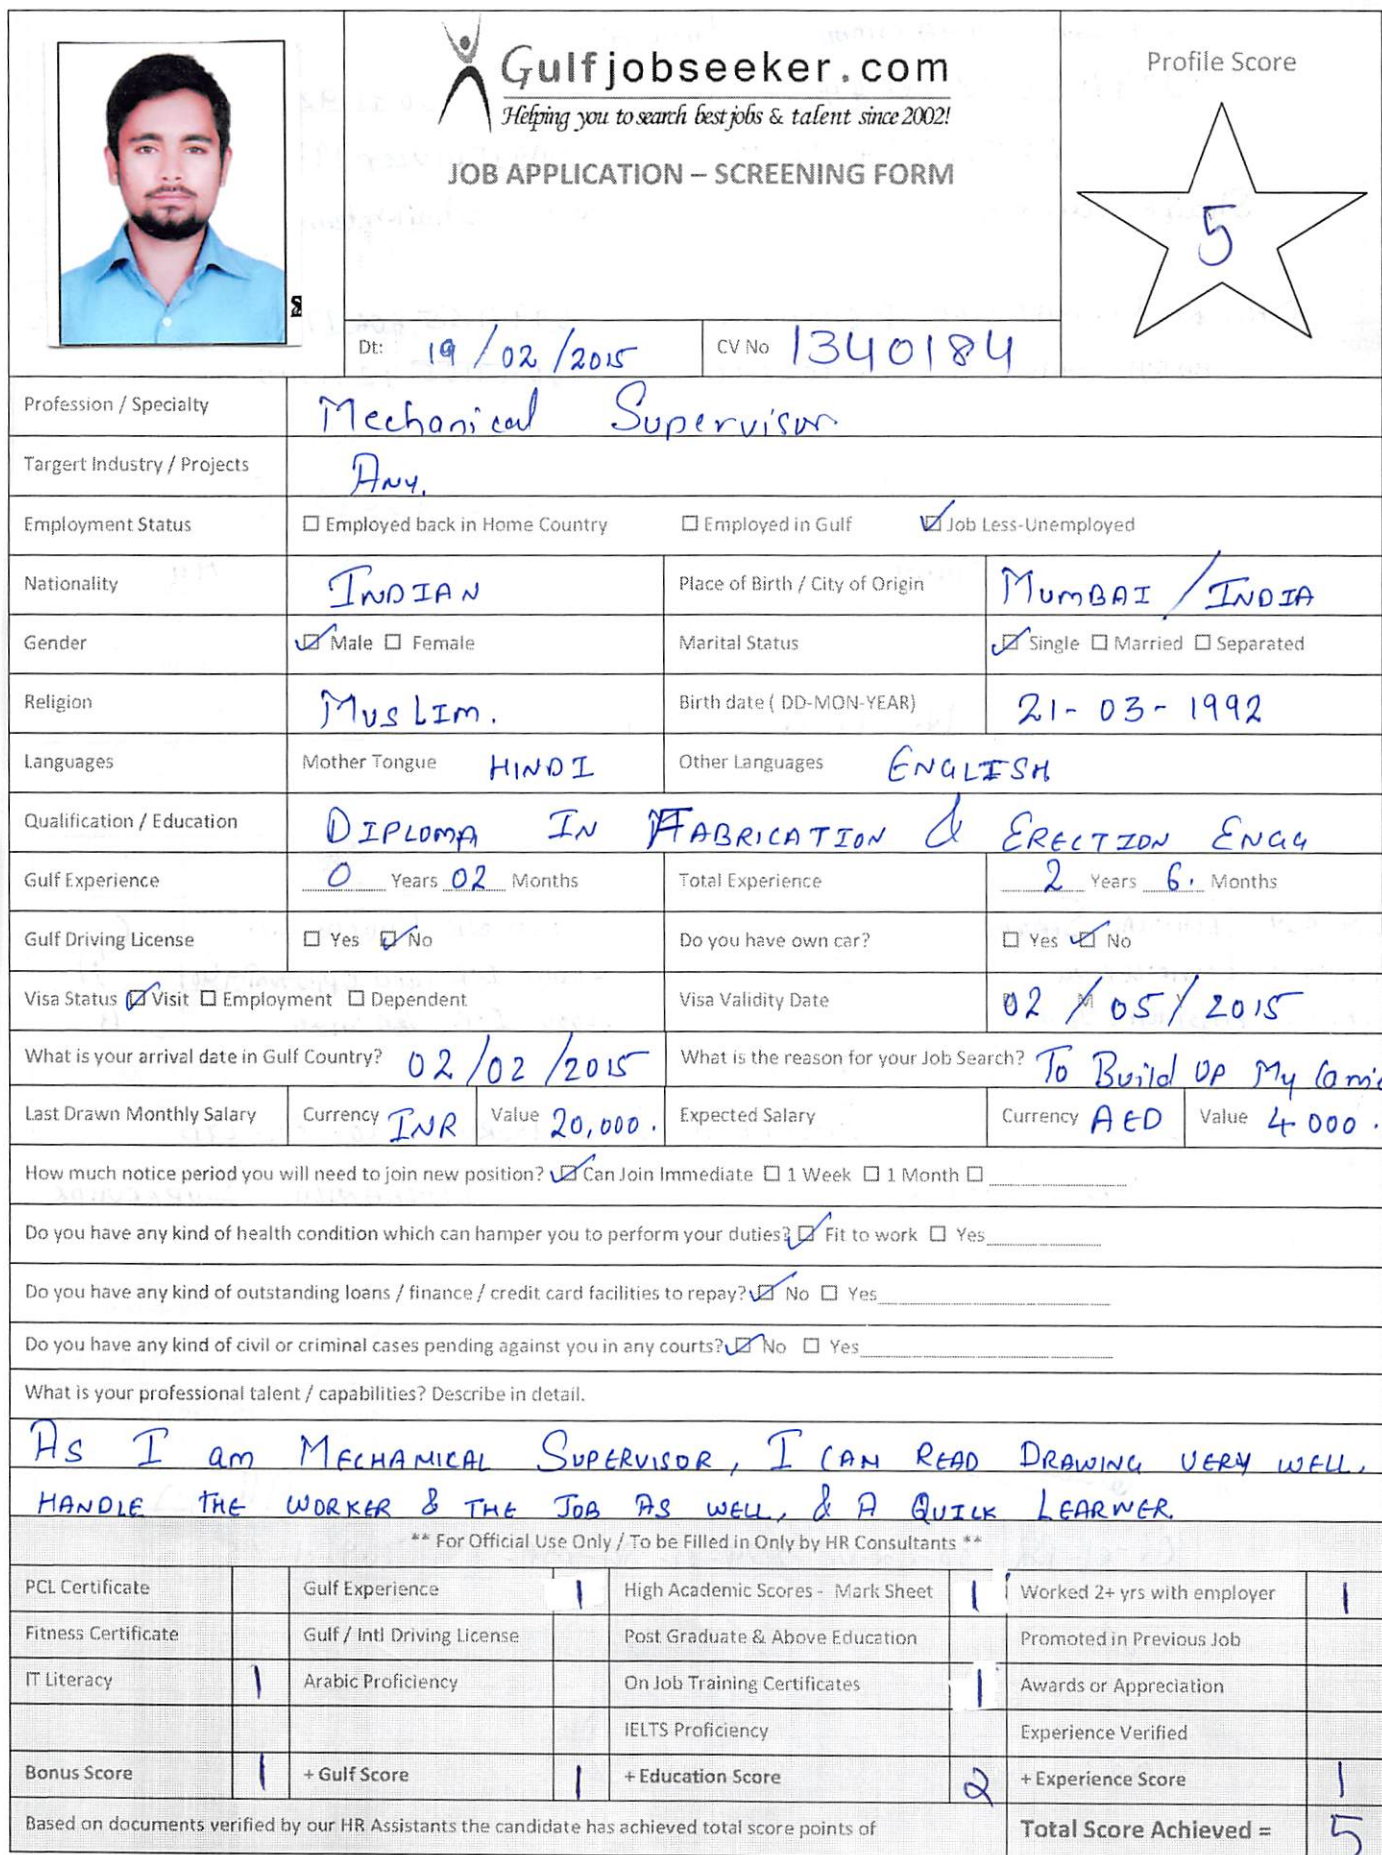 Gulfjobseeker.com
Helping you to search best jobs & talent since 2002!
JOB APPLICATION – SCREENING FORM
Profile Score
5
Dt: 19/02/2015 CV No 1340184
Profession / Specialty Mechanical Supervisor
Targert Industry / Projects Any.
Employment Status ☐ Employed back in Home Country ☐ Employed in Gulf ☑ Job Less-Unemployed
Nationality INDIAN Place of Birth / City of Origin MUMBAI / INDIA
Gender ☑ Male ☐ Female Marital Status ☑ Single ☐ Married ☐ Separated
Religion MUSLIM. Birth date ( DD-MON-YEAR) 21-03-1992
Languages Mother Tongue HINDI Other Languages ENGLISH
Qualification / Education DIPLOMA IN FABRICATION & ERECTION ENGG
Gulf Experience 0 Years 02 Months Total Experience 2 Years 6. Months
Gulf Driving License ☐ Yes ☑ No Do you have own car? ☐ Yes ☑ No
Visa Status ☑ Visit ☐ Employment ☐ Dependent Visa Validity Date 02/05/2015
What is your arrival date in Gulf Country? 02/02/2015 What is the reason for your Job Search? To Build UP My
Last Drawn Monthly Salary Currency INR Value 20,000. Expected Salary Currency AED Value 4000.
How much notice period you will need to join new position? ☑ Can Join Immediate ☐ 1 Week ☐ 1 Month ☐
Do you have any kind of health condition which can hamper you to perform your duties? ☑ Fit to work ☐ Yes
Do you have any kind of outstanding loans / finance / credit card facilities to repay? ☑ No ☐ Yes
Do you have any kind of civil or criminal cases pending against you in any courts? ☑ No ☐ Yes
What is your professional talent / capabilities? Describe in detail.
As I am MECHANICAL SUPERVISOR, I CAN READ DRAWING VERY WELL,
HANDLE THE WORKER & THE JOB AS WELL, & A QUICK LEARNER.
** For Official Use Only / To be Filled in Only by HR Consultants **
PCL Certificate Gulf Experience 1 High Academic Scores - Mark Sheet 1 Worked 2+ yrs with employer 1
Fitness Certificate Gulf / Intl Driving License Post Graduate & Above Education Promoted in Previous Job
IT Literacy 1 Arabic Proficiency On Job Training Certificates 1 Awards or Appreciation
IELTS Proficiency Experience Verified
Bonus Score 1 + Gulf Score 1 + Education Score 2 + Experience Score 1
Based on documents verified by our HR Assistants the candidate has achieved total score points of Total Score Achieved = 5